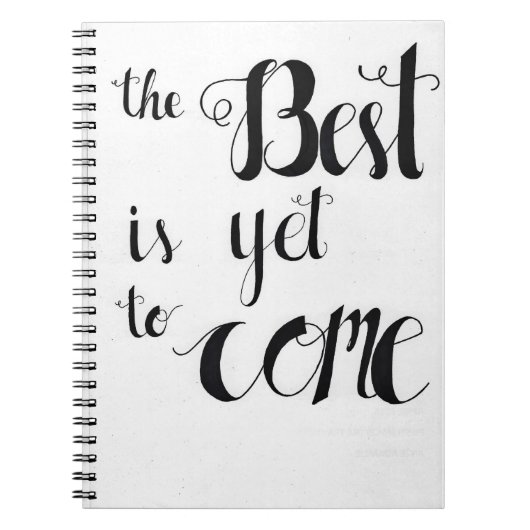 the Best
is yet
to come